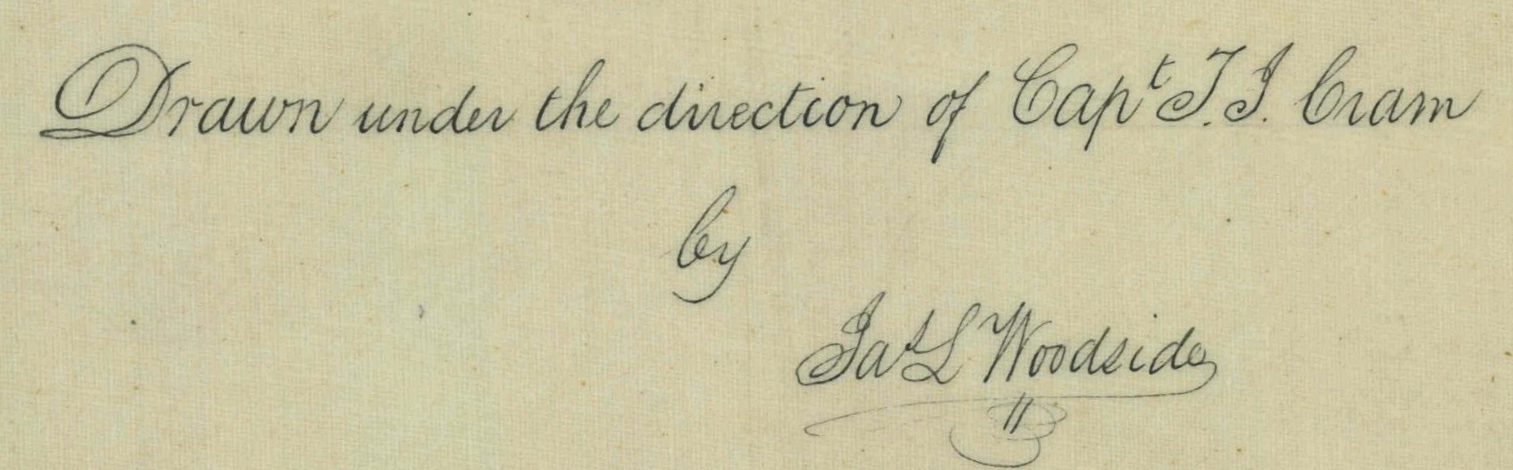 Drawn under the direction of Capt T.J. Cram
by
Jas L Woodside